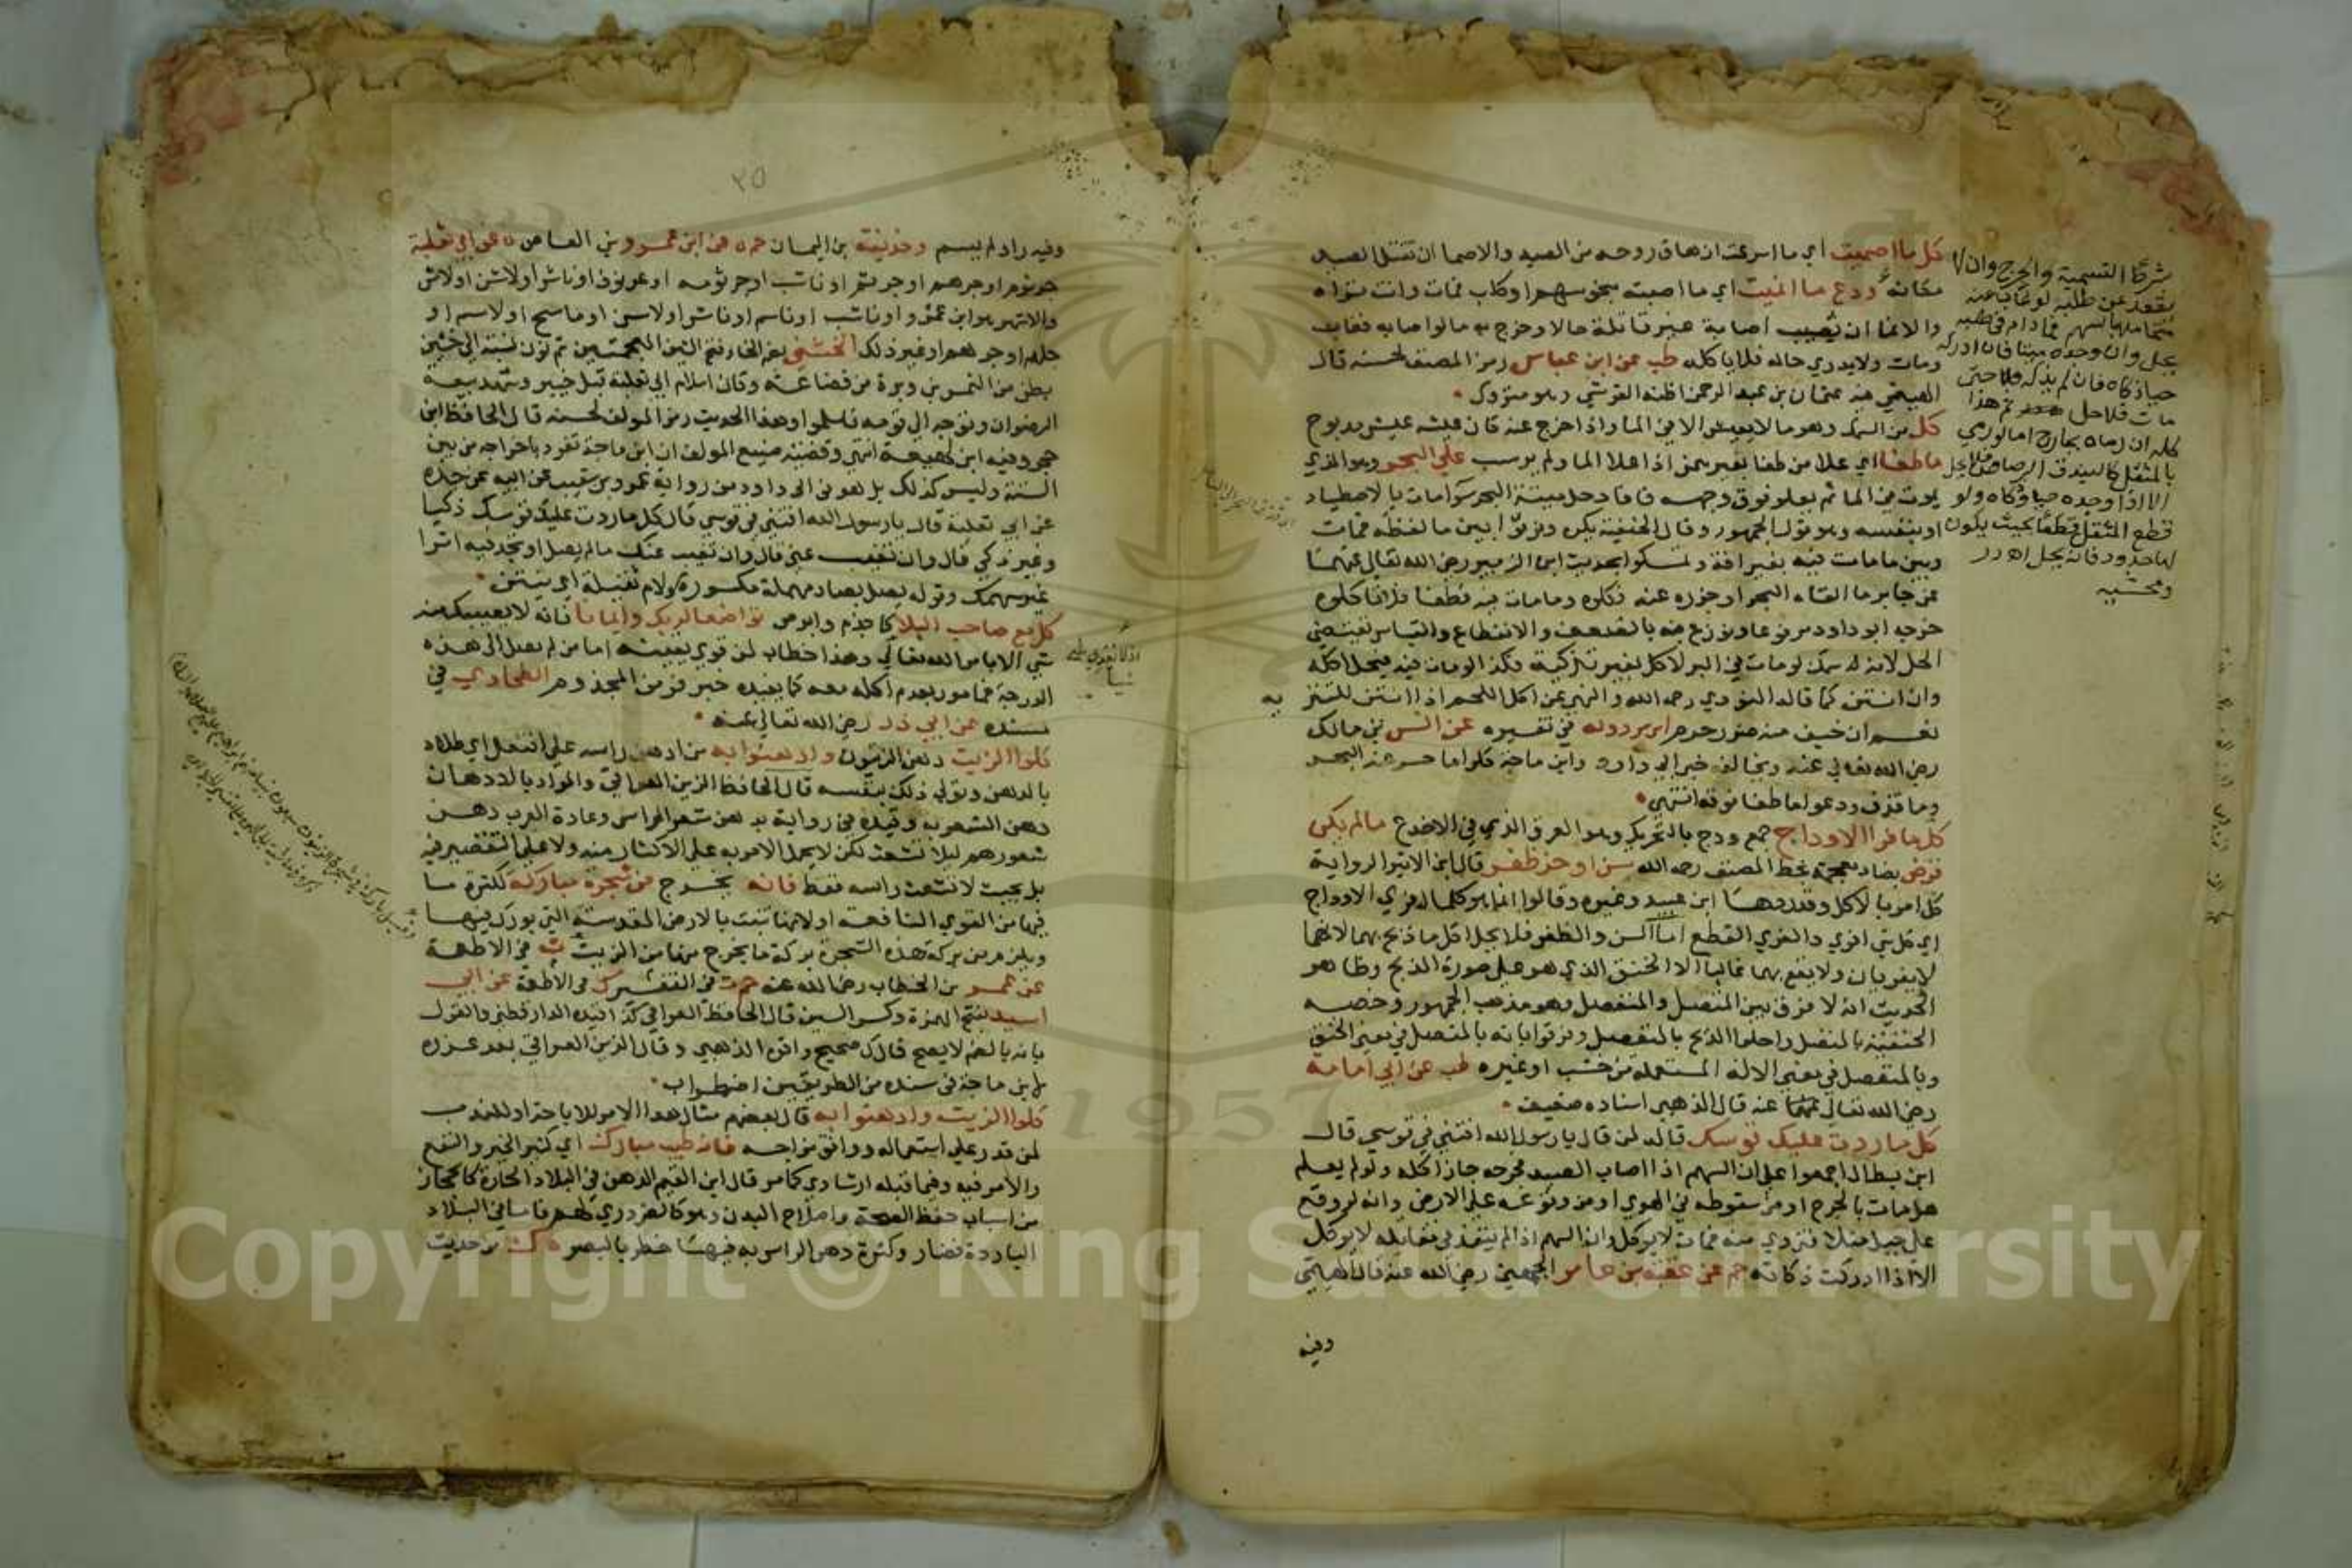 كل ما اصميت اي ما اسرعت ازهاق روحه من الصيد والاصما ان تقتل الصيد
مكانه ودع ما انميت اي ما اصبته بنحو سهم او كلب فمات وانت تراه
والانما ان تصيب اصابة غير قاتلة حالا وخرج به مالو اصابه فغاب
ومات ولا يدري حاله فلا ياكله طب عن ابن عباس رمز المصنف لحسنه قال
الهيثمي فيه عثمان بن عبد الرحمن اظنه القرشي وهو متروك
كل من السمك وهو ما لا يعيش الا في الما واذا اخرج عنه كان عيشه عيش مذبوح
ما طفا اي علا من طفا بغير همز اذا علا الما ولم يرسب علي البحر وهو الذي
يموت في الما ثم يعلو فوق وجهه فافاد حل ميتة البحر سوا مات بالاصطياد
او بنفسه وهو قول الجمهور وقال الحنفية يكره وفرقوا بين ما لفظه فمات
وبين ما مات فيه بغير افة وتمسكوا بحديث ابي الزبير رضي الله تعالي عنهما
عن جابر ما القاه البحر او جزر عنه فكلوه وما مات فيه فطفا فلا تاكلوه
خرجه ابو داود مرفوعا ونوزع فيه بالضعف والانقطاع والقياس يقتضي
الحل لانه سمك لو مات في البر لاكل بغير تذكية فكذا لو مات فيه فيحل اكله
وان انتن كما قاله النووي رحمه الله والنهي عن اكل اللحم اذا انتن للتنزيه
نعم ان خيف منه ضرر حرم ابن مردويه في تفسيره عن انس بن مالك
رضي الله تعالي عنه ويخالف خبر ابي داود وابن ماجة كلوا ما حسر عنه البحر
وما قذف ودعوا ما طفا فوقه انتهي
كل ما فرا الاوداج جمع ودج بالتحريك وهو العرق الذي في الاخدع ما لم يكن
قرض بضاد معجمة بخط المصنف رحمه الله سن او حز ظفر قال ابن الاثير الرواية
كل امر بالاكل وقد ردها ابن عبيد وغيره وقالوا انما هو كلما فري الاوداج
اي كل شي افري والفري القطع اما السن والظفر فلا يحل اكل ما ذبح بهما لانهما
لا يفريان ولا يقع بهما غالبا الا الخنق الذي هو علي صورة الذبح وظاهر
الحديث انه لا فرق بين المتصل والمنفصل وهو مذهب الجمهور وخصه
الحنفية بالمتصل واحلوا الذبح بالمنفصل وفرقوا بانه بالمتصل في معني الخنق
وبالمنفصل في معني الالة المستعملة من خشب او غيره طب عن ابي امامة
رضي الله تعالي عنه قال الذهبي اسناده ضعيف
كل ما ردت عليك قوسك قاله لمن قال يا رسول الله افتني في قوسي قال
ابن بطال اجمعوا علي ان السهم اذا اصاب الصيد فجرحه جاز اكله ولو لم يعلم
هل مات بالجرح او من سقوطه في الهوي او من وقوعه علي الارض وانه لو وقع
علي جبل مثلا فتردي منه فمات لا يوكل وان السهم اذا لم ينفذ في مقاتله لا يوكل
الا اذا ادركت ذكاته حم عن عقبة بن عامر الجهني رضي الله عنه قال الهيثمي
وفيه
شرطا التسمية والجرح وان لا
يقعد عن طلبه لو غاب عنه
متحاملا بالسهم فما دام في طلبه
يحل وان وجده ميتا فان ادركه
حيا ذكاه فان لم يذكه حتي
مات فلا حل ثم هذا
كله ان رماه بجارح اما لو رمي
بالمثقل كالبندق الرصاص فلا يحل
الا اذا وجده حيا وذكاه ولو
قطع المثقل قطعا بحيث يكون
لها حد ود فانه يحل اه
به
٢٥
وفيه راو لم يسم وحذيفة بن اليمان حم ه عن ابن عمرو بن العاص ه عن ابي ثعلبة
جرثوم او جرهم او جرثم او ناشب او جرثومه او عرنوف او ناشر او لاشن او لاش
والاشهر هو ابن عمرو او ناشب او ناسم او ناشر او لاسن او ماسح او لاسم او
جلهم او جرلهم او غير ذلك الخشني بضم الخا وفتح الشين المعجمتين ثم نون نسبة الي خشين
بطن من النمر بن وبرة من قضاعة وكان اسلام ابي ثعلبة قبل خيبر وشهد بيعة
الرضوان وتوجه الي قومه فاسلموا وهذا الحديث رمز المولف لحسنه قال الحافظ ابن
حجر وفيه ابن لهيعة انتهي وقضية صنيع المولف ان ابن ماجة تفرد باخراجه من بين
الستة وليس كذلك بل هو في ابي داود من رواية عمرو بن شعيب عن ابيه عن جده
عن ابي ثعلبة قال يا رسول الله افتني في قوسي قال كل ما ردت عليك قوسك ذكيا
وغير ذكي قال وان تغيب عني قال وان تغيب عنك ما لم يصل او تجد فيه اثرا
غير سهمك وقوله يصل بصاد مهملة مكسورة ولام ثقيلة اي ينتن
كل مع صاحب البلا كاجذم وابرص تواضعا لربك وايمانا فانه لا يصيبك منه
شي الا بامر الله تعالي وهذا خطاب لمن قوي يقينه اما من لم يصل الي هذه
الدرجة فمامور بعدم اكله معه كما يفيده خبر فر من المجذوم الطحاوي في
مسنده عن ابي ذر رضي الله تعالي عنه
كلوا الزيت دهن الزيتون وادهنوا به من ادهن راسه علي افتعل اي طلاه
بالدهن وتولي ذلك بنفسه قال الحافظ الزين العراقي والمراد بالادهان
دهن الشعر به وقيده في رواية بدهن شعر الراس وعادة العرب دهن
شعورهم ليلا تشعث لكن لا يحمل الامر به علي الاكثار منه ولا علي التقصير فيه
بل بحيث لا تشعث راسه فقط فانه يخرج من شجرة مباركة لكثرة ما
فيها من القوي النافعة او لانها تنبت بالارض المقدسة التي بورك فيها
ويلزم من بركة هذه الشجرة بركة ما يخرج منها من الزيت ت في الاطعمة
عن عمر بن الخطاب رضي الله عنه حم ت في التفسير ك في الاطعمة عن ابي
اسيد بفتح الهمزة وكسر السين قال الحافظ العراقي كذا قيده الدارقطني والقول
بانه بالضم لا يصح قال ك صحيح واقره الذهبي وقال الزين العراقي بعد عزوه
لابن ماجة في سنده من الطريقين اضطراب
كلوا الزيت وادهنوا به قال بعضهم مثال هذا الامر للاباحة او للندب
لمن قدر علي استعماله ووافق مزاجه فانه طيب مبارك اي كثير الخير والنفع
والامر فيه وفيما قبله ارشادي كما مر قال ابن القيم الدهن في البلاد الحارة كالحجاز
من اسباب حفظ الصحة واصلاح البدن وهو كالضروري لهم فاما في البلاد
الباردة فضار وكثرة دهن الراس به فيها خطر بالبصر ه ك من حديث
Copyright © King Saud University
1957